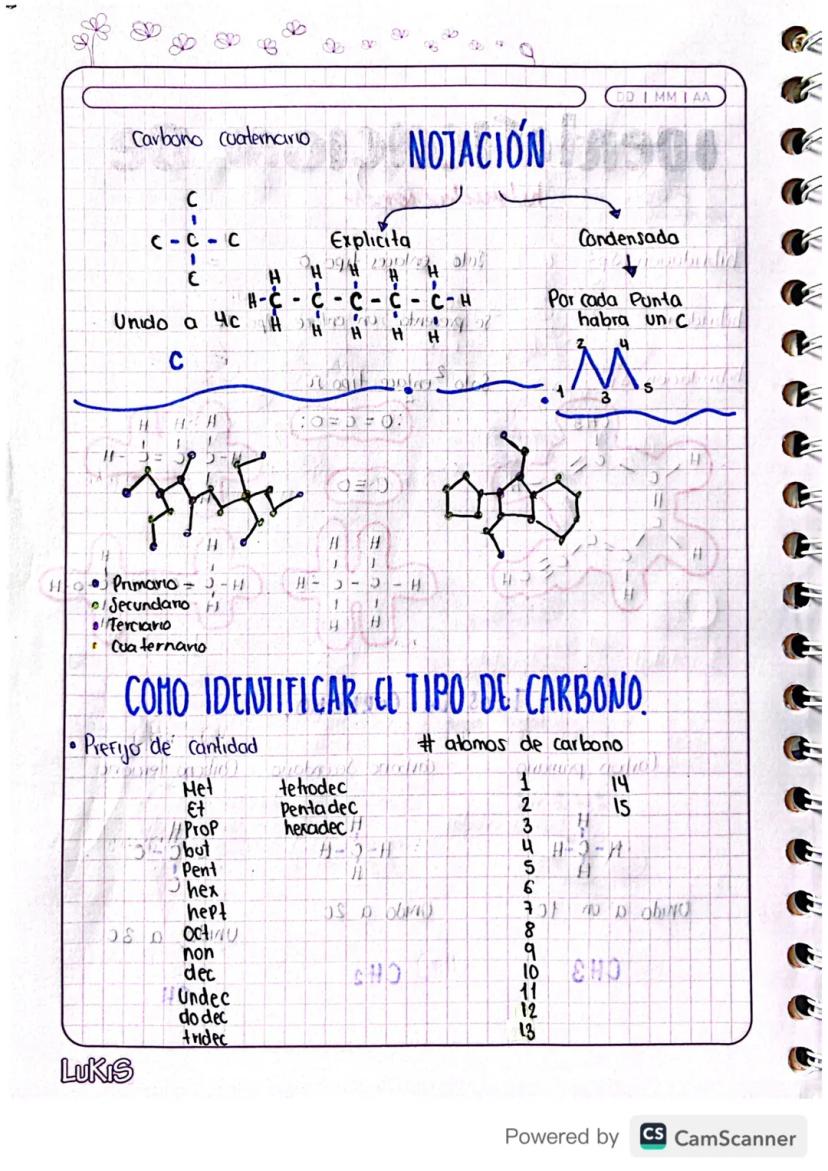 DD | MM | AA
Carbono cuaternario
NOTACIÓN
C
C - C - C
C
Unido a 4C
C
Explicita
H H H H H
H-C - C - C - C - C-H
H H H H H
Condensada
Por cada Punta
habra un C
2 4
1 3 5
• Primario
• Secundario
• Terciario
• Cuaternario
COMO IDENTIFICAR EL TIPO DE CARBONO.
• Prefijo de cantidad # atomos de carbono
Met tetradec 1 14
Et Pentadec 2 15
Prop hexadec 3
but 4
Pent 5
hex 6
hept 7
Oct 8
non 9
dec 10
Undec 11
dodec 12
tridec 13
LUKIS
Powered by CS CamScanner